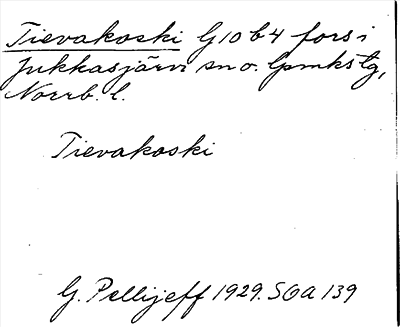 Tievakoski G10b4 fors i
Jukkasjärvi sn o. lpmkstg,
Norrb. l.
Tievakoski
G. Pellijeff 1929. SOA 139